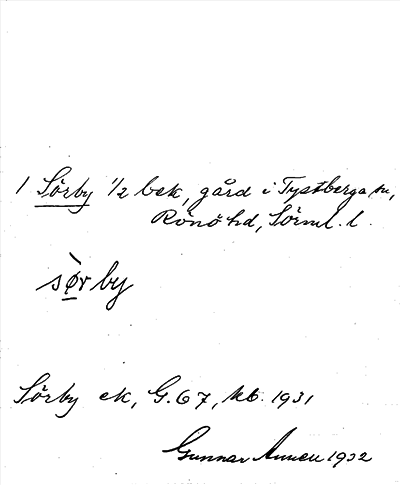 1 Sörby 1/2 bek, gård i Tystberga sn,
Rönö hd, Sörml. l.
sø̀rby
Sörby ek, G. 67, kb. 1931
Gunnar 1932